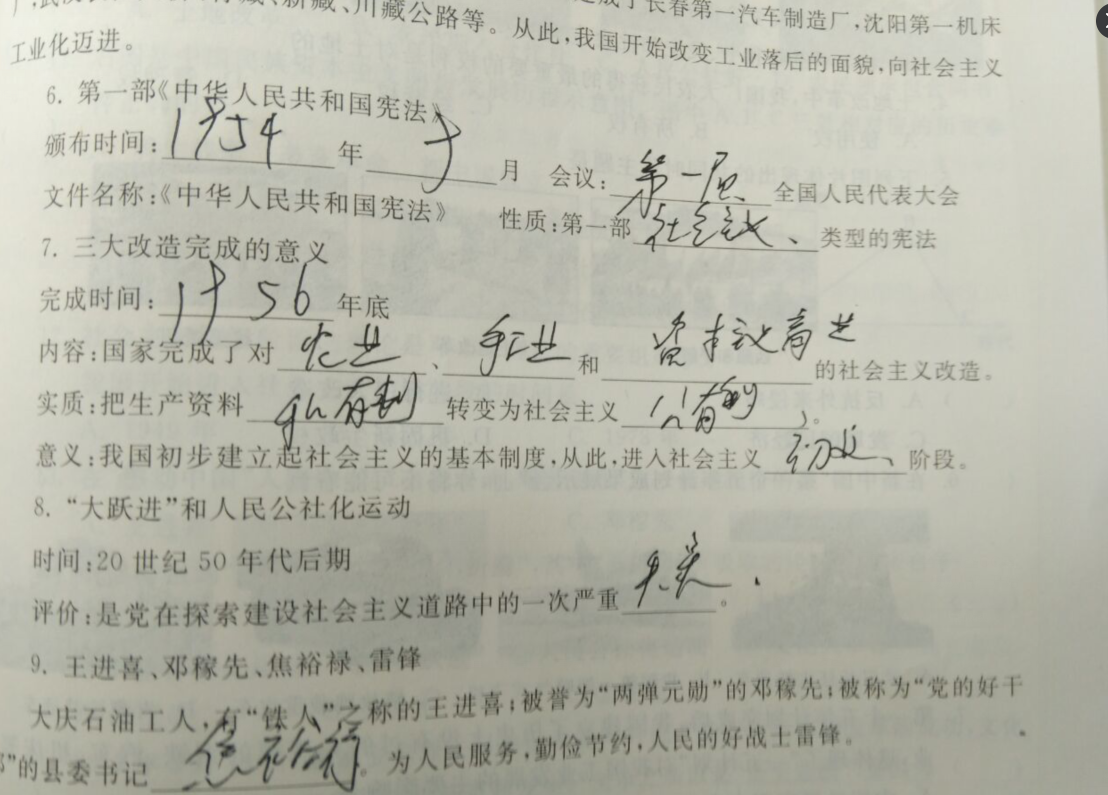 藏、新藏、川藏公路等。从此,我国开始改变工业落后的面貌,向社会主义
了长春第一汽车制造厂,沈阳第一机床
工业化迈进。
6. 第一部《中华人民共和国宪法》
颁布时间:1954年9月 会议:第一届全国人民代表大会
文件名称:《中华人民共和国宪法》 性质:第一部社会主义、类型的宪法
7. 三大改造完成的意义
完成时间:1956年底
内容:国家完成了对农业、手工业和资本主义商业的社会主义改造。
实质:把生产资料私有制转变为社会主义公有制。
意义:我国初步建立起社会主义的基本制度,从此,进入社会主义初级、阶段。
8. “大跃进”和人民公社化运动
时间:20世纪50年代后期
评价:是党在探索建设社会主义道路中的一次严重失误。
9. 王进喜、邓稼先、焦裕禄、雷锋
大庆石油工人,有“铁人”之称的王进喜;被誉为“两弹元勋”的邓稼先;被称为“党的好干
部”的县委书记焦裕禄。为人民服务,勤俭节约,人民的好战士雷锋。